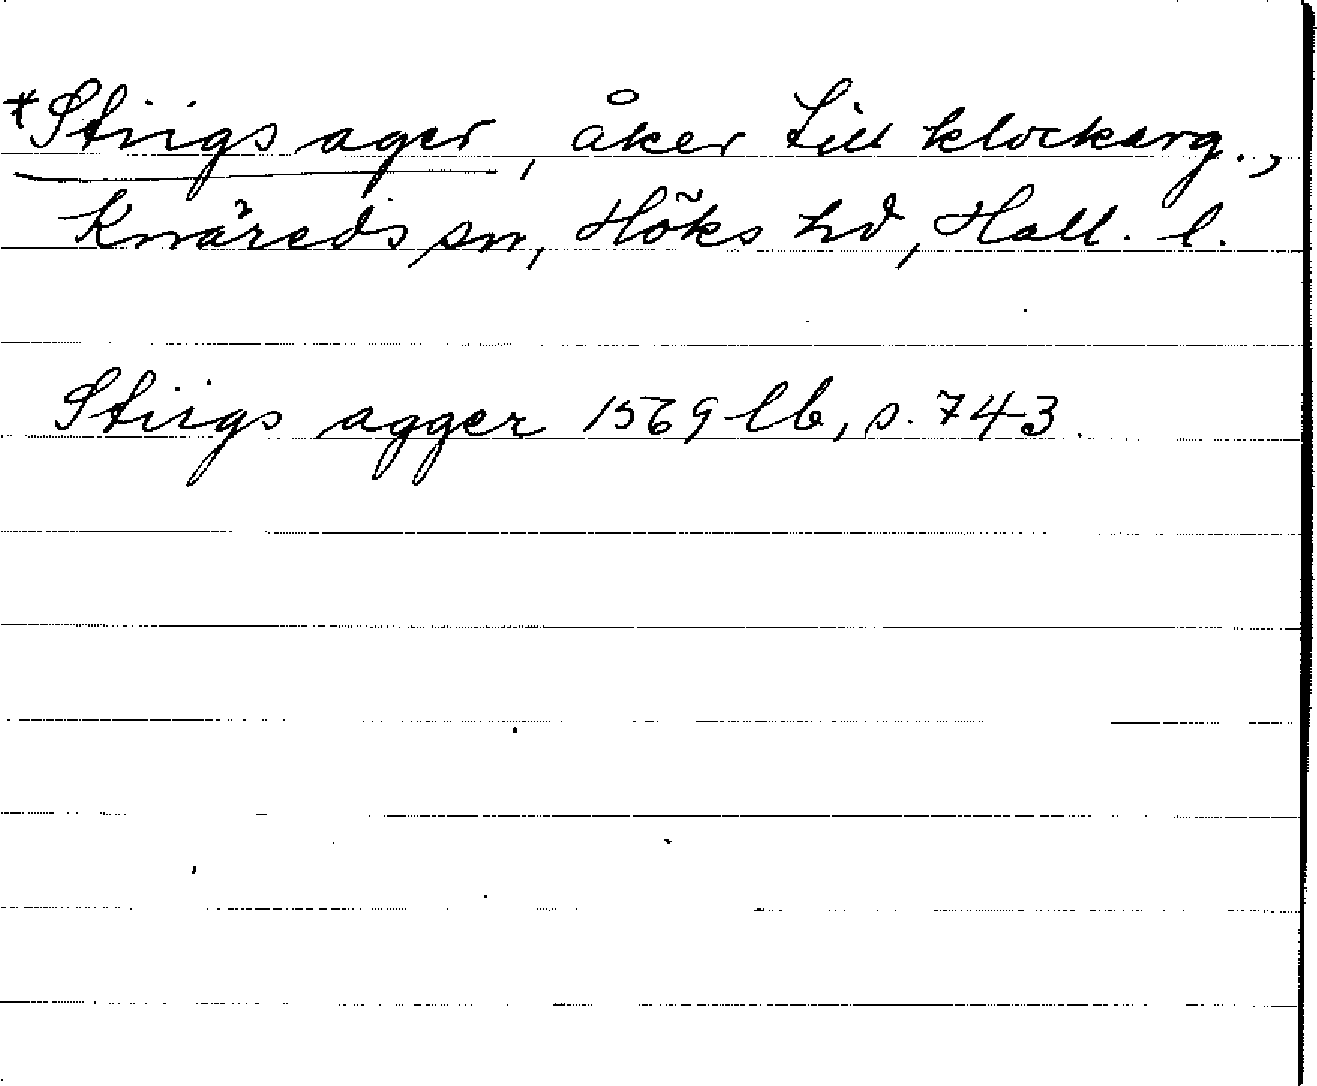 *Stiigs ager, åker till klockarg.,
Knäreds sn, Höks hd, Hall. l.
Stiigs agger 1569 lb, s. 743.